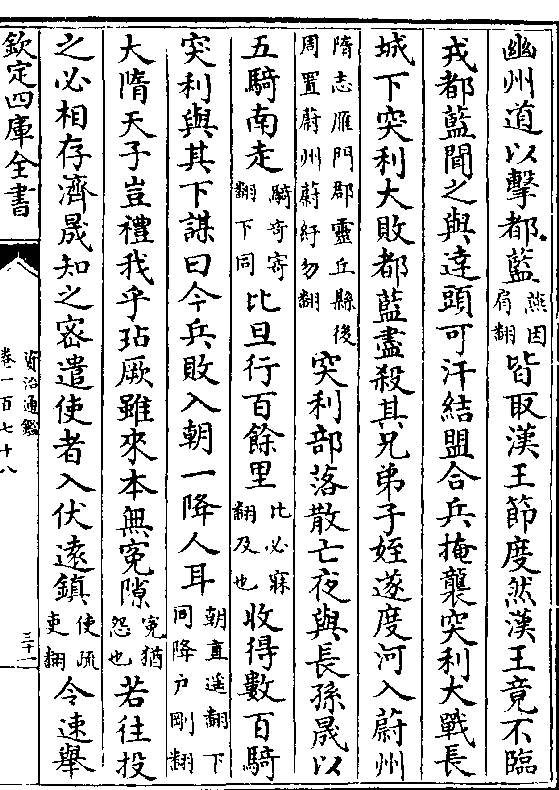 幽州道以擊都藍燕因肩翻皆取漢王節度然漢王竟不臨
戎都藍聞之與達頭可汗結盟合兵掩襲突利大戰長
城下突利大敗都藍盡殺其兄弟子姪遂度河入蔚州
隋志雁門郡靈丘縣後周置蔚州蔚紆勿翻突利部落散亡夜與長孫晟以
五騎南走騎奇寄翻下同比旦行百餘里比必寐翻及也收得數百騎
突利與其下謀曰今兵敗入朝一降人耳朝直遥翻下同降户剛翻
大隋天子豈禮我乎玷厥雖來本無寃隙寃猶怨也若往投
之必相存濟晟知之密遣使者入伏遠鎮使疏吏翻令速舉
欽定四庫全書
資治通鑑
卷一百七十八
三十一